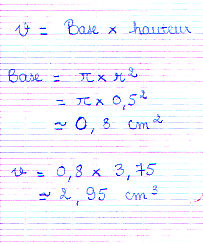 v = Base × hauteur
Base = π × r²
= π × 0,5²
≈ 0,8 cm²
v = 0,8 × 3,75
≈ 2,95 cm³